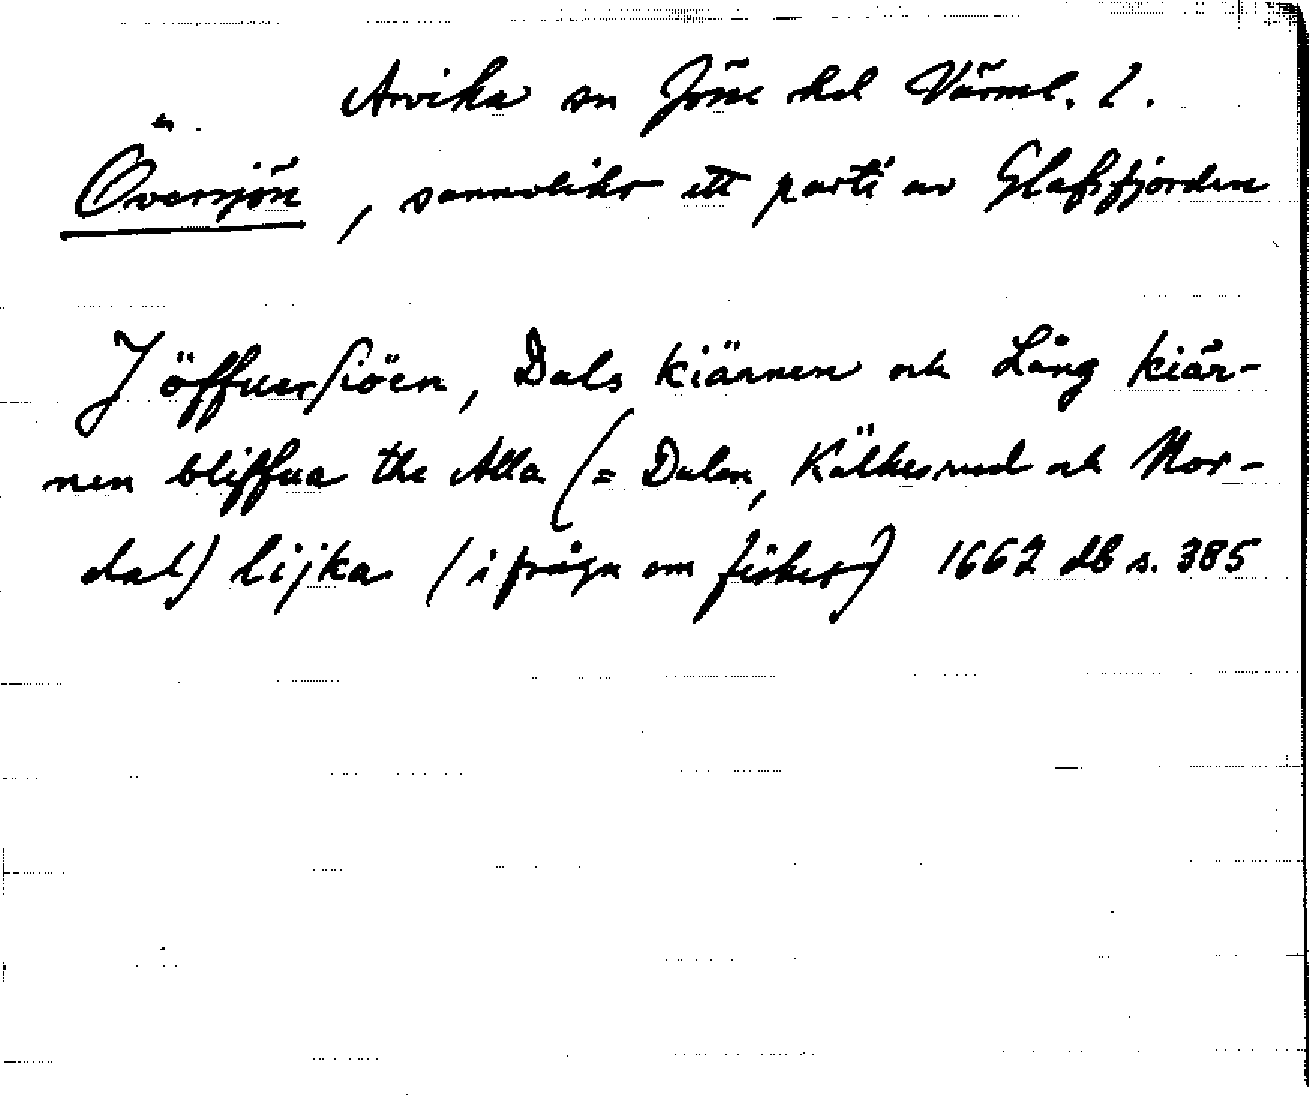 Arvika sn Jösse hd Värml. l.
Översjön, sannolikt ett parti av Glafsfjorden
J öffuersiöen, Dals kiännen och Lång kiär-
nen bliffua the Alla (= Dalen, Kälkesrud och Nor-
dal) lijka (i fråga om fisket) 1662 db s. 385